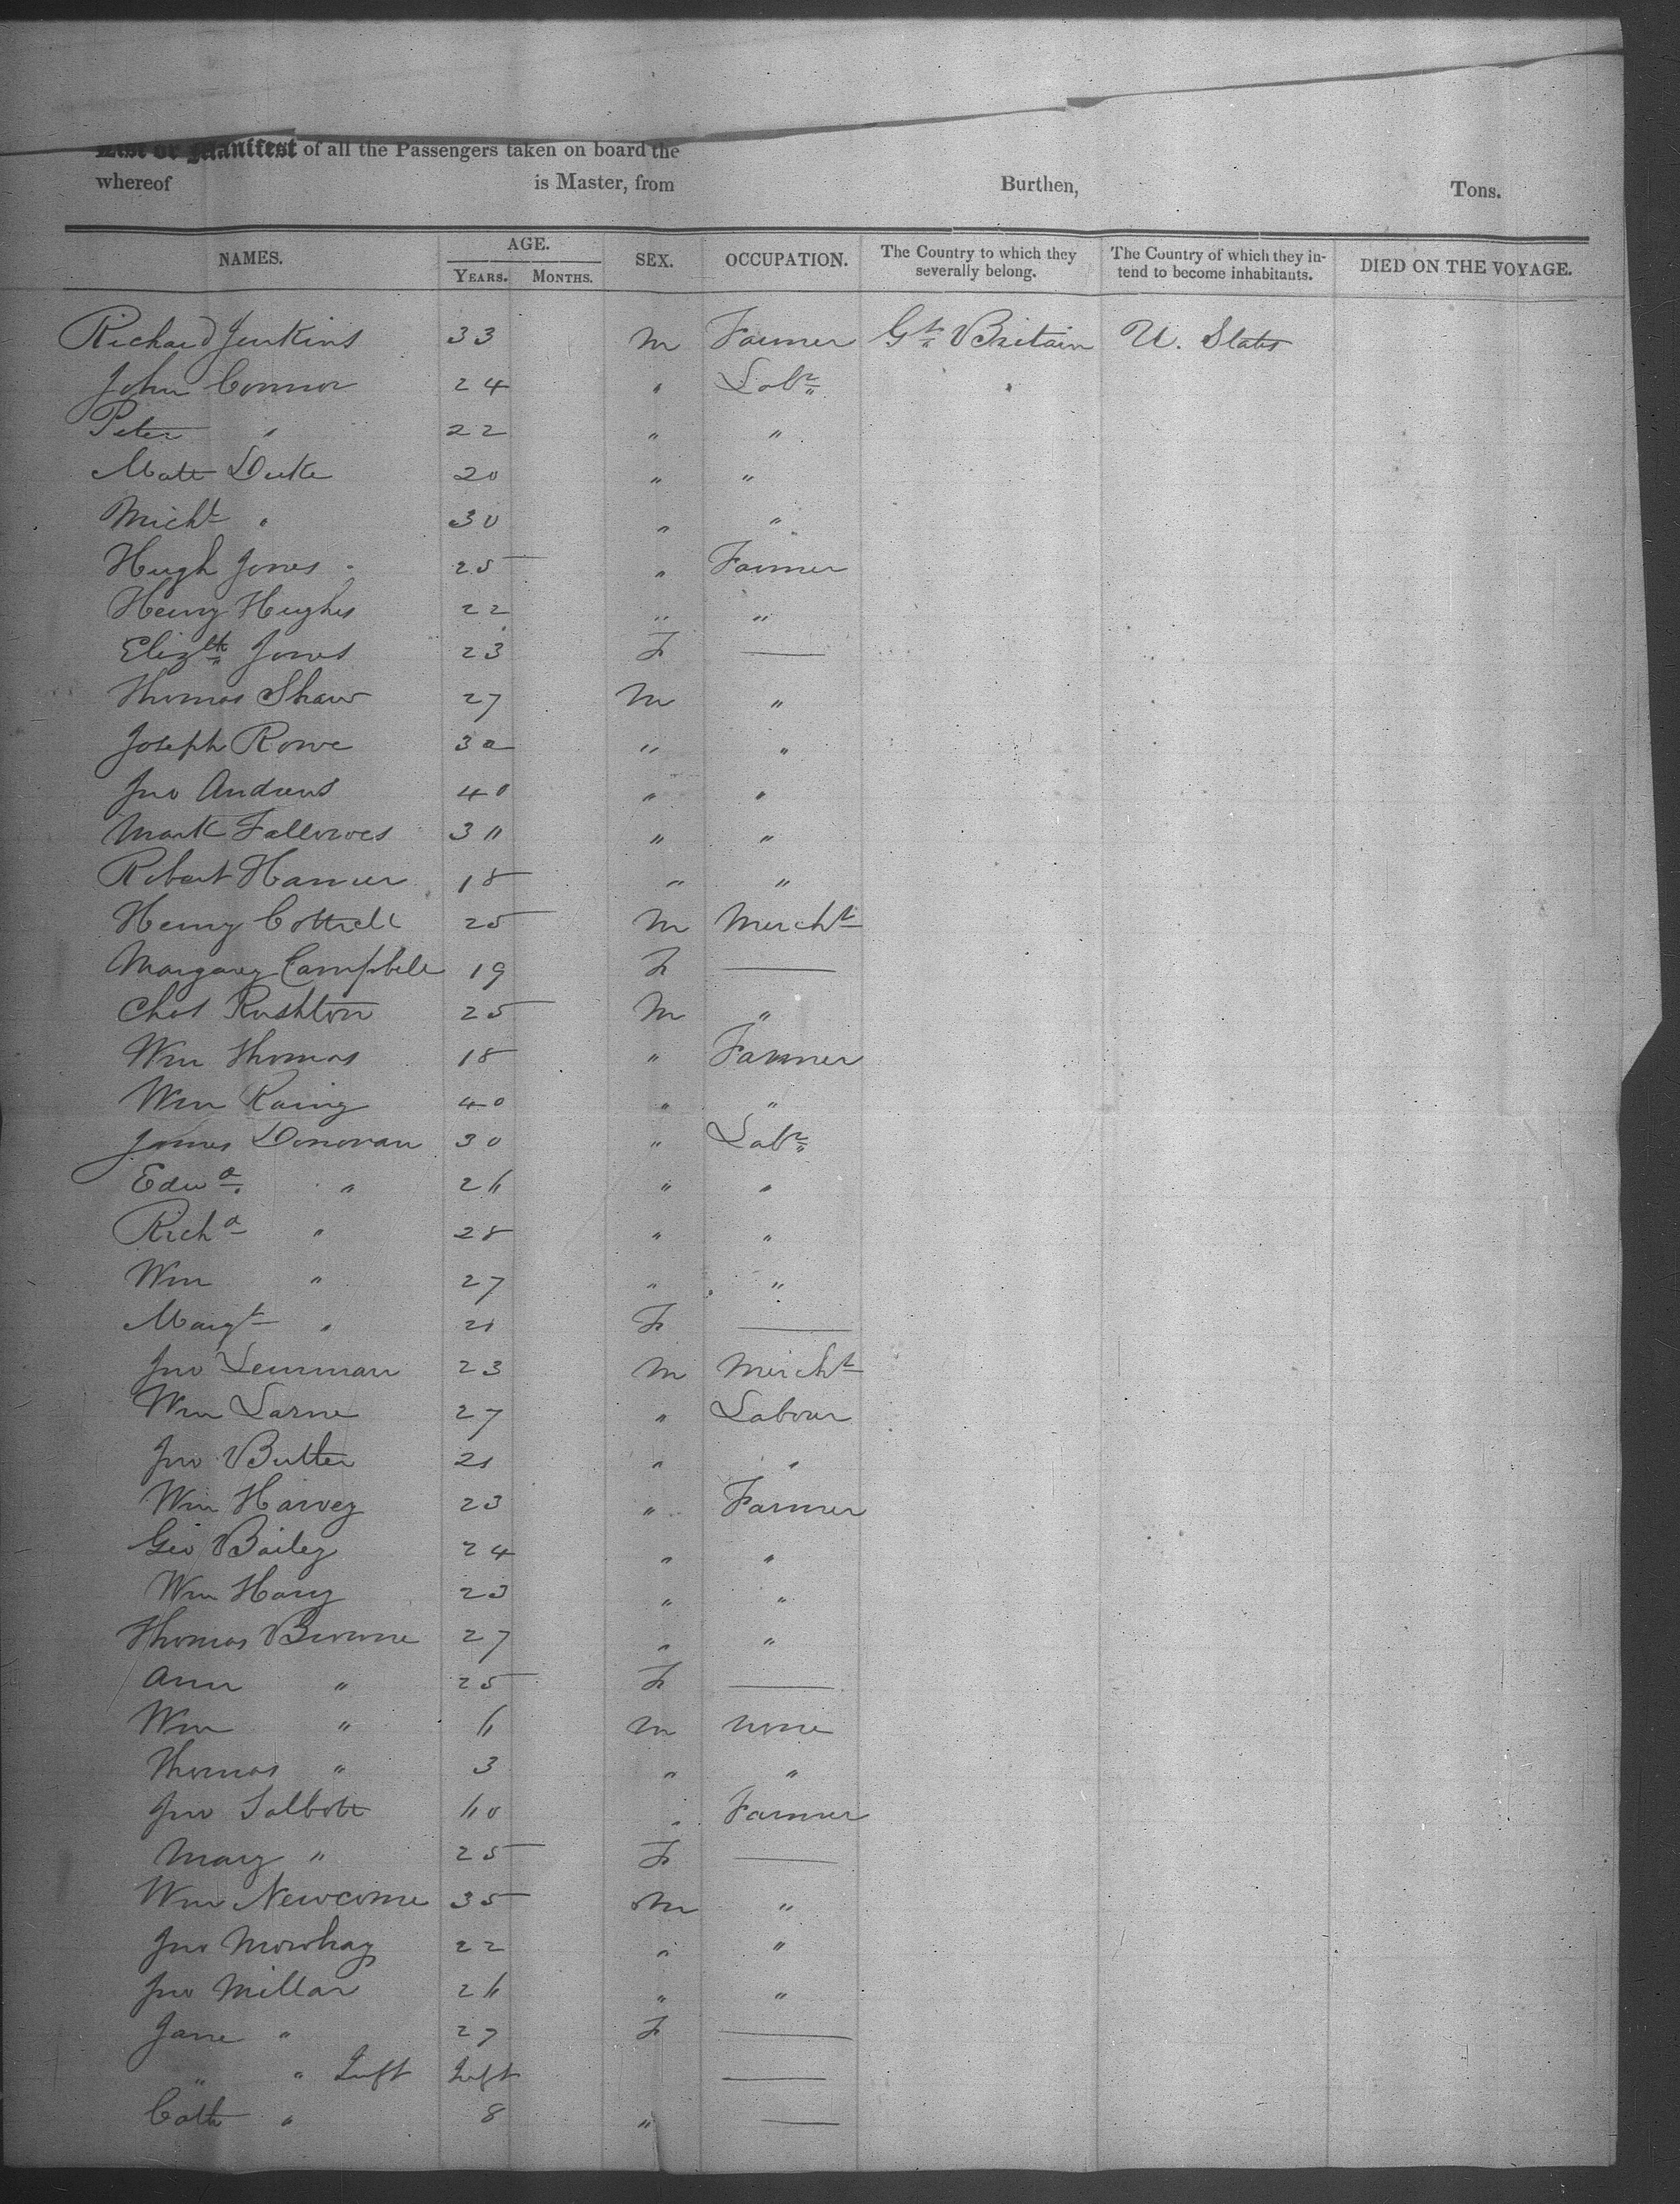 List or Manifest of all the Passengers taken on board the
whereof is Master, from Burthen, Tons.
NAMES. AGE. YEARS. MONTHS. SEX. OCCUPATION. The Country to which they severally belong. The Country of which they intend to become inhabitants. DIED ON THE VOYAGE.
Richard Jenkins 33 M Farmer Gt Britain U. States
John Connor 24 " Labr
Peter " 22 " "
Matt Duke 20 " "
Michl " 30 " "
Hugh Jones 25 " Farmer
Henry Hughes 22 " "
Elizth Jones 23 F —
Thomas Shaw 27 M "
Joseph Rowe 30 " "
Jno Andrews 40 " "
Mark Fallowes 36 " "
Robert Hamer 18 " "
Henry Cottrell 25 M Mercht
Margarey Campbell 19 F —
Chas Rushton 25 M "
Wm Thomas 18 " Farmer
Wm 40 " "
James Donovan 30 " Labr
Edwd " 26 " "
Richd " 28 " "
Wm " 27 " "
Margt " 21 F —
Jno 23 M Mercht
Wm Larne 27 " Labour
Jno Butter 21 " "
Wm Harvey 23 " Farmer
Geo Bailey 24 " "
Wm 23 " "
Thomas Browne 27 " "
Ann " 25 F —
Wm " 6 M none
Thomas " 3 " "
Jno Talbott 60 " Farmer
Mary " 25 F —
Wm Newcome 35 M "
Jno 22 " "
Jno Millar 26 " "
Jane " 27 F —
" " Inft Inft —
Cath " 8 " —